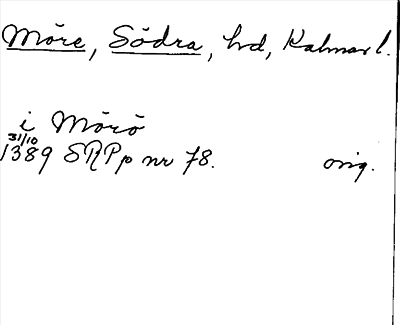 Möre, Södra, hd, Kalmar l.
i Mörö
31/10
1389 SRPp nr 78. orig.